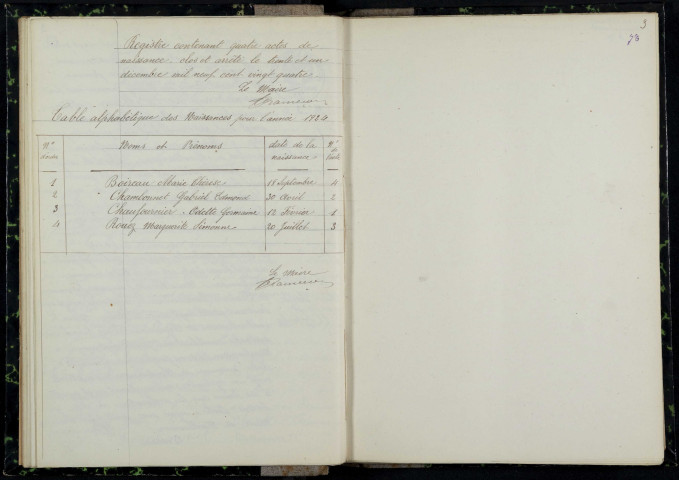 Registre contenant quatre actes de
naissance clos et arrêté le trente et un
décembre mil neuf cent vingt quatre.
Le Maire
Table alphabétique des Naissances pour l'année 1924
N° Noms et Prénoms date de la naissance N° de
1 Boireau Marie 18 Septembre 4
2 Chambonnet Gabriel Edmond 30 Avril 2
3 Chaufournier Odette Germaine 12 Février 1
4 Marguerite Simonne 20 Juillet 3
Le Maire
3
73